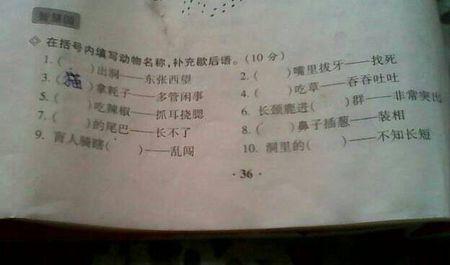 智慧园
在括号内填写动物名称,补充歇后语。(10分)
1. ( )出洞——东张西望 2. ( )嘴里拔牙——找死
3. (猫)拿耗子——多管闲事 4. ( )吃草——吞吞吐吐
5. ( )吃辣椒——抓耳挠腮 6. 长颈鹿进( )群——非常突出
7. ( )的尾巴——长不了 8. ( )鼻子插葱——装相
9. 盲人骑瞎( )——乱闯 10. 洞里的( )——不知长短
·36·